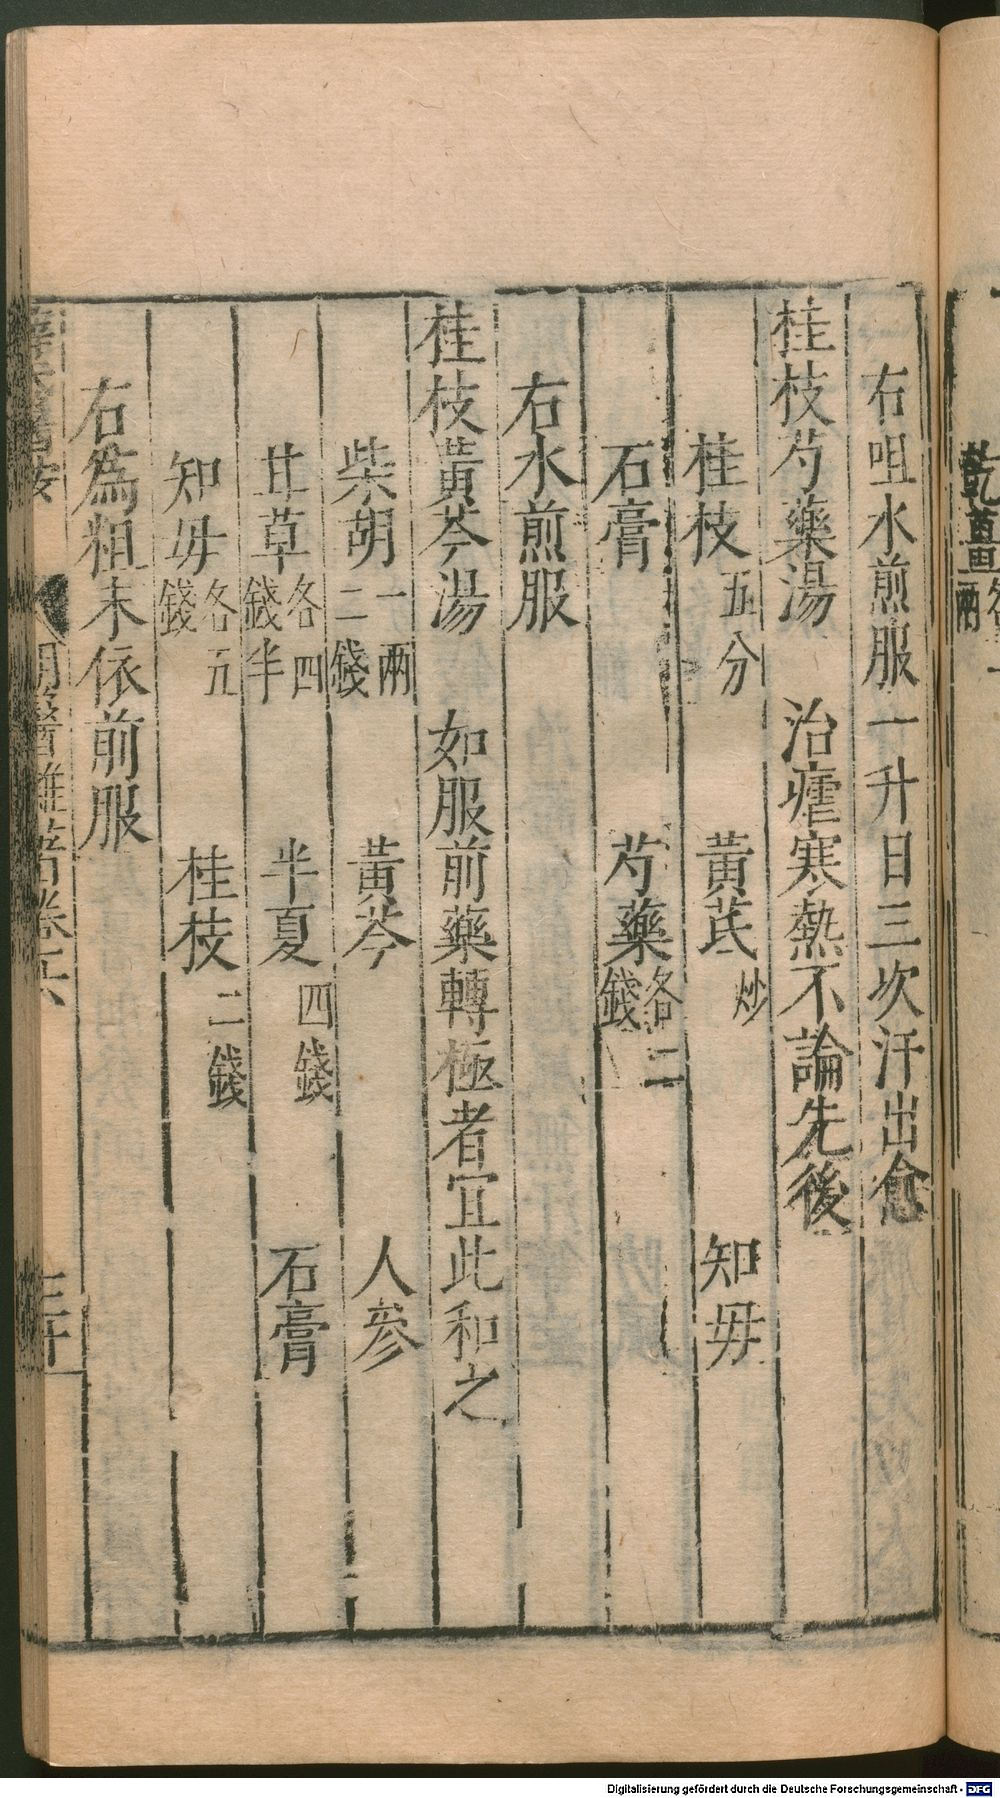 乾薑
兩
右咀水煎服一升日三次汗出愈
桂枝芍藥湯　治瘧寒熱不論先後
桂枝五分　黃芪炒　知毋
石膏　芍藥各二錢
右水煎服
桂枝黃芩湯　如服前藥轉極者宜此和之
柴胡一兩二錢　黃芩　人參
甘草各四錢半　半夏四錢　石膏
知毋各五錢　桂枝二錢
右爲粗末依前服
明醫雜著卷之六
三十
Digitalisierung gefördert durch die Deutsche Forschungsgemeinschaft - DFG